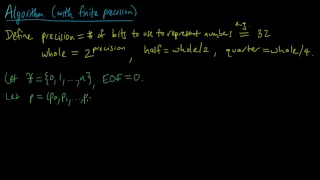 Algorithm (with finite precision)
Define precision = # of bits to use to represent numbers e.g. = 32
whole = 2^precision, half = whole/2, quarter = whole/4.
Let X = {0, 1, ..., n}, EOF = 0.
Let p = (p0, p1, ..., p